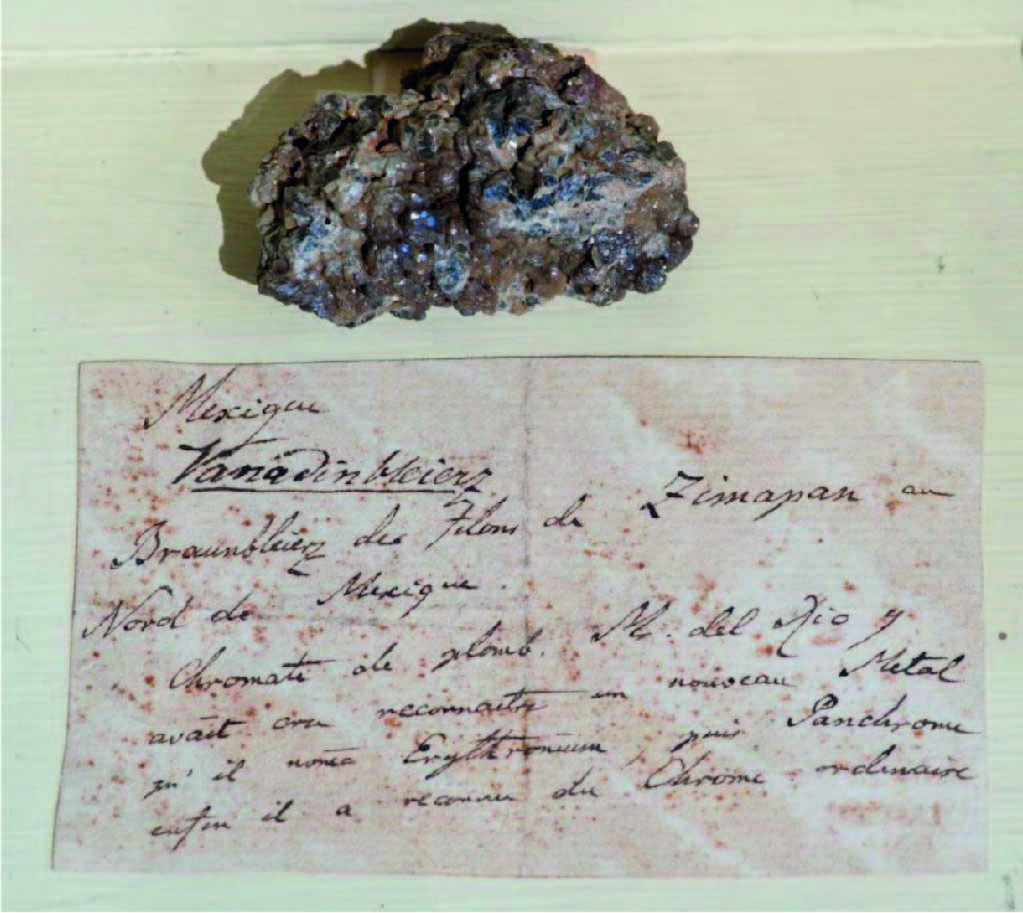 Mexique
Vanadinbleierz
Braunbleierz des filons de Zimapan au
Nord de Mexique.
Chromate de plomb. M. del Rio y
avait cru reconnaitre un nouveau Metal
qu'il noma Erythronium, puis Panchrome
enfin il a reconnu du Chrome ordinaire